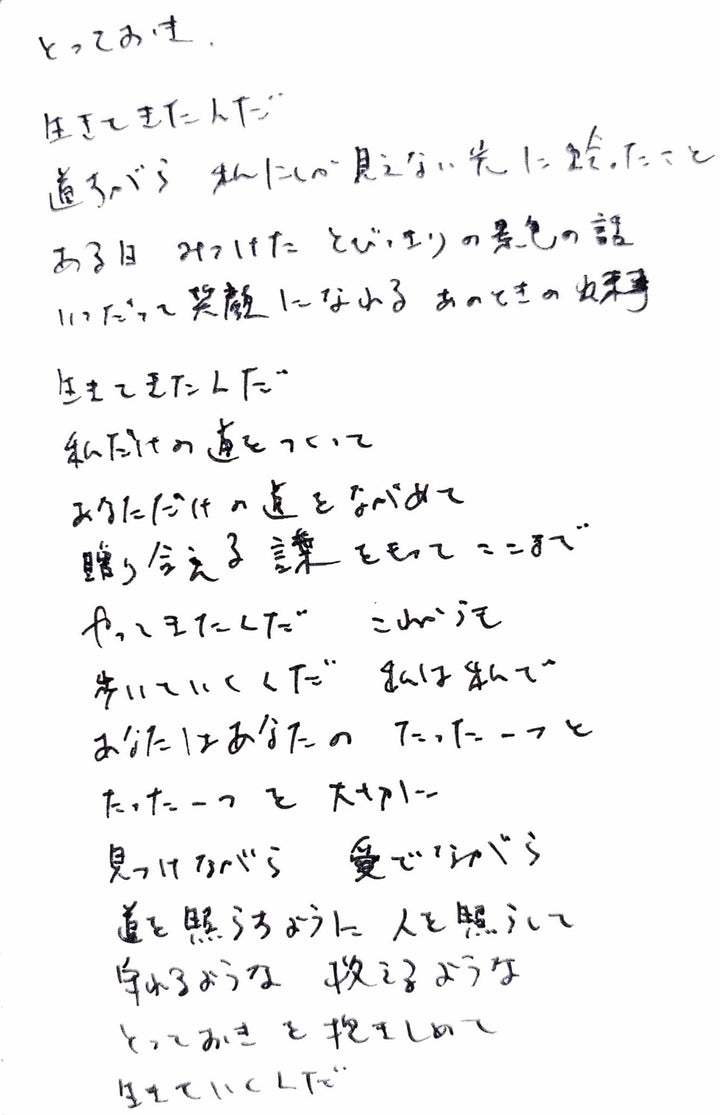 とっておき.
生きてきたんだ
道すがら 私にしか見えない光に出会ったこと
ある日 みつけた とびっきりの景色の話
いつだって笑顔になれる あのときの
生きてきたんだ
私だけの道をつくって
あなただけの道をながめて
贈り合える言葉をもってここまで
やってきたんだ これからも
歩いていくんだ 私は私で
あなたはあなたの たった一つと
たった一つを 大切に
見つけながら 愛でながら
道を照らすように 人を照らして
守れるような 救えるような
とっておきを抱きしめて
生きていくんだ